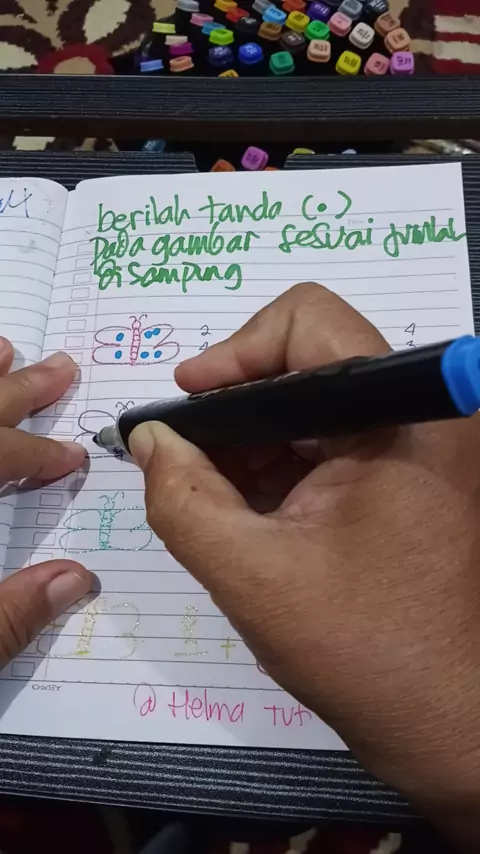 berilah tanda (•)
pada gambar sesuai jumlah
disamping
2 4
@ Helma Tut